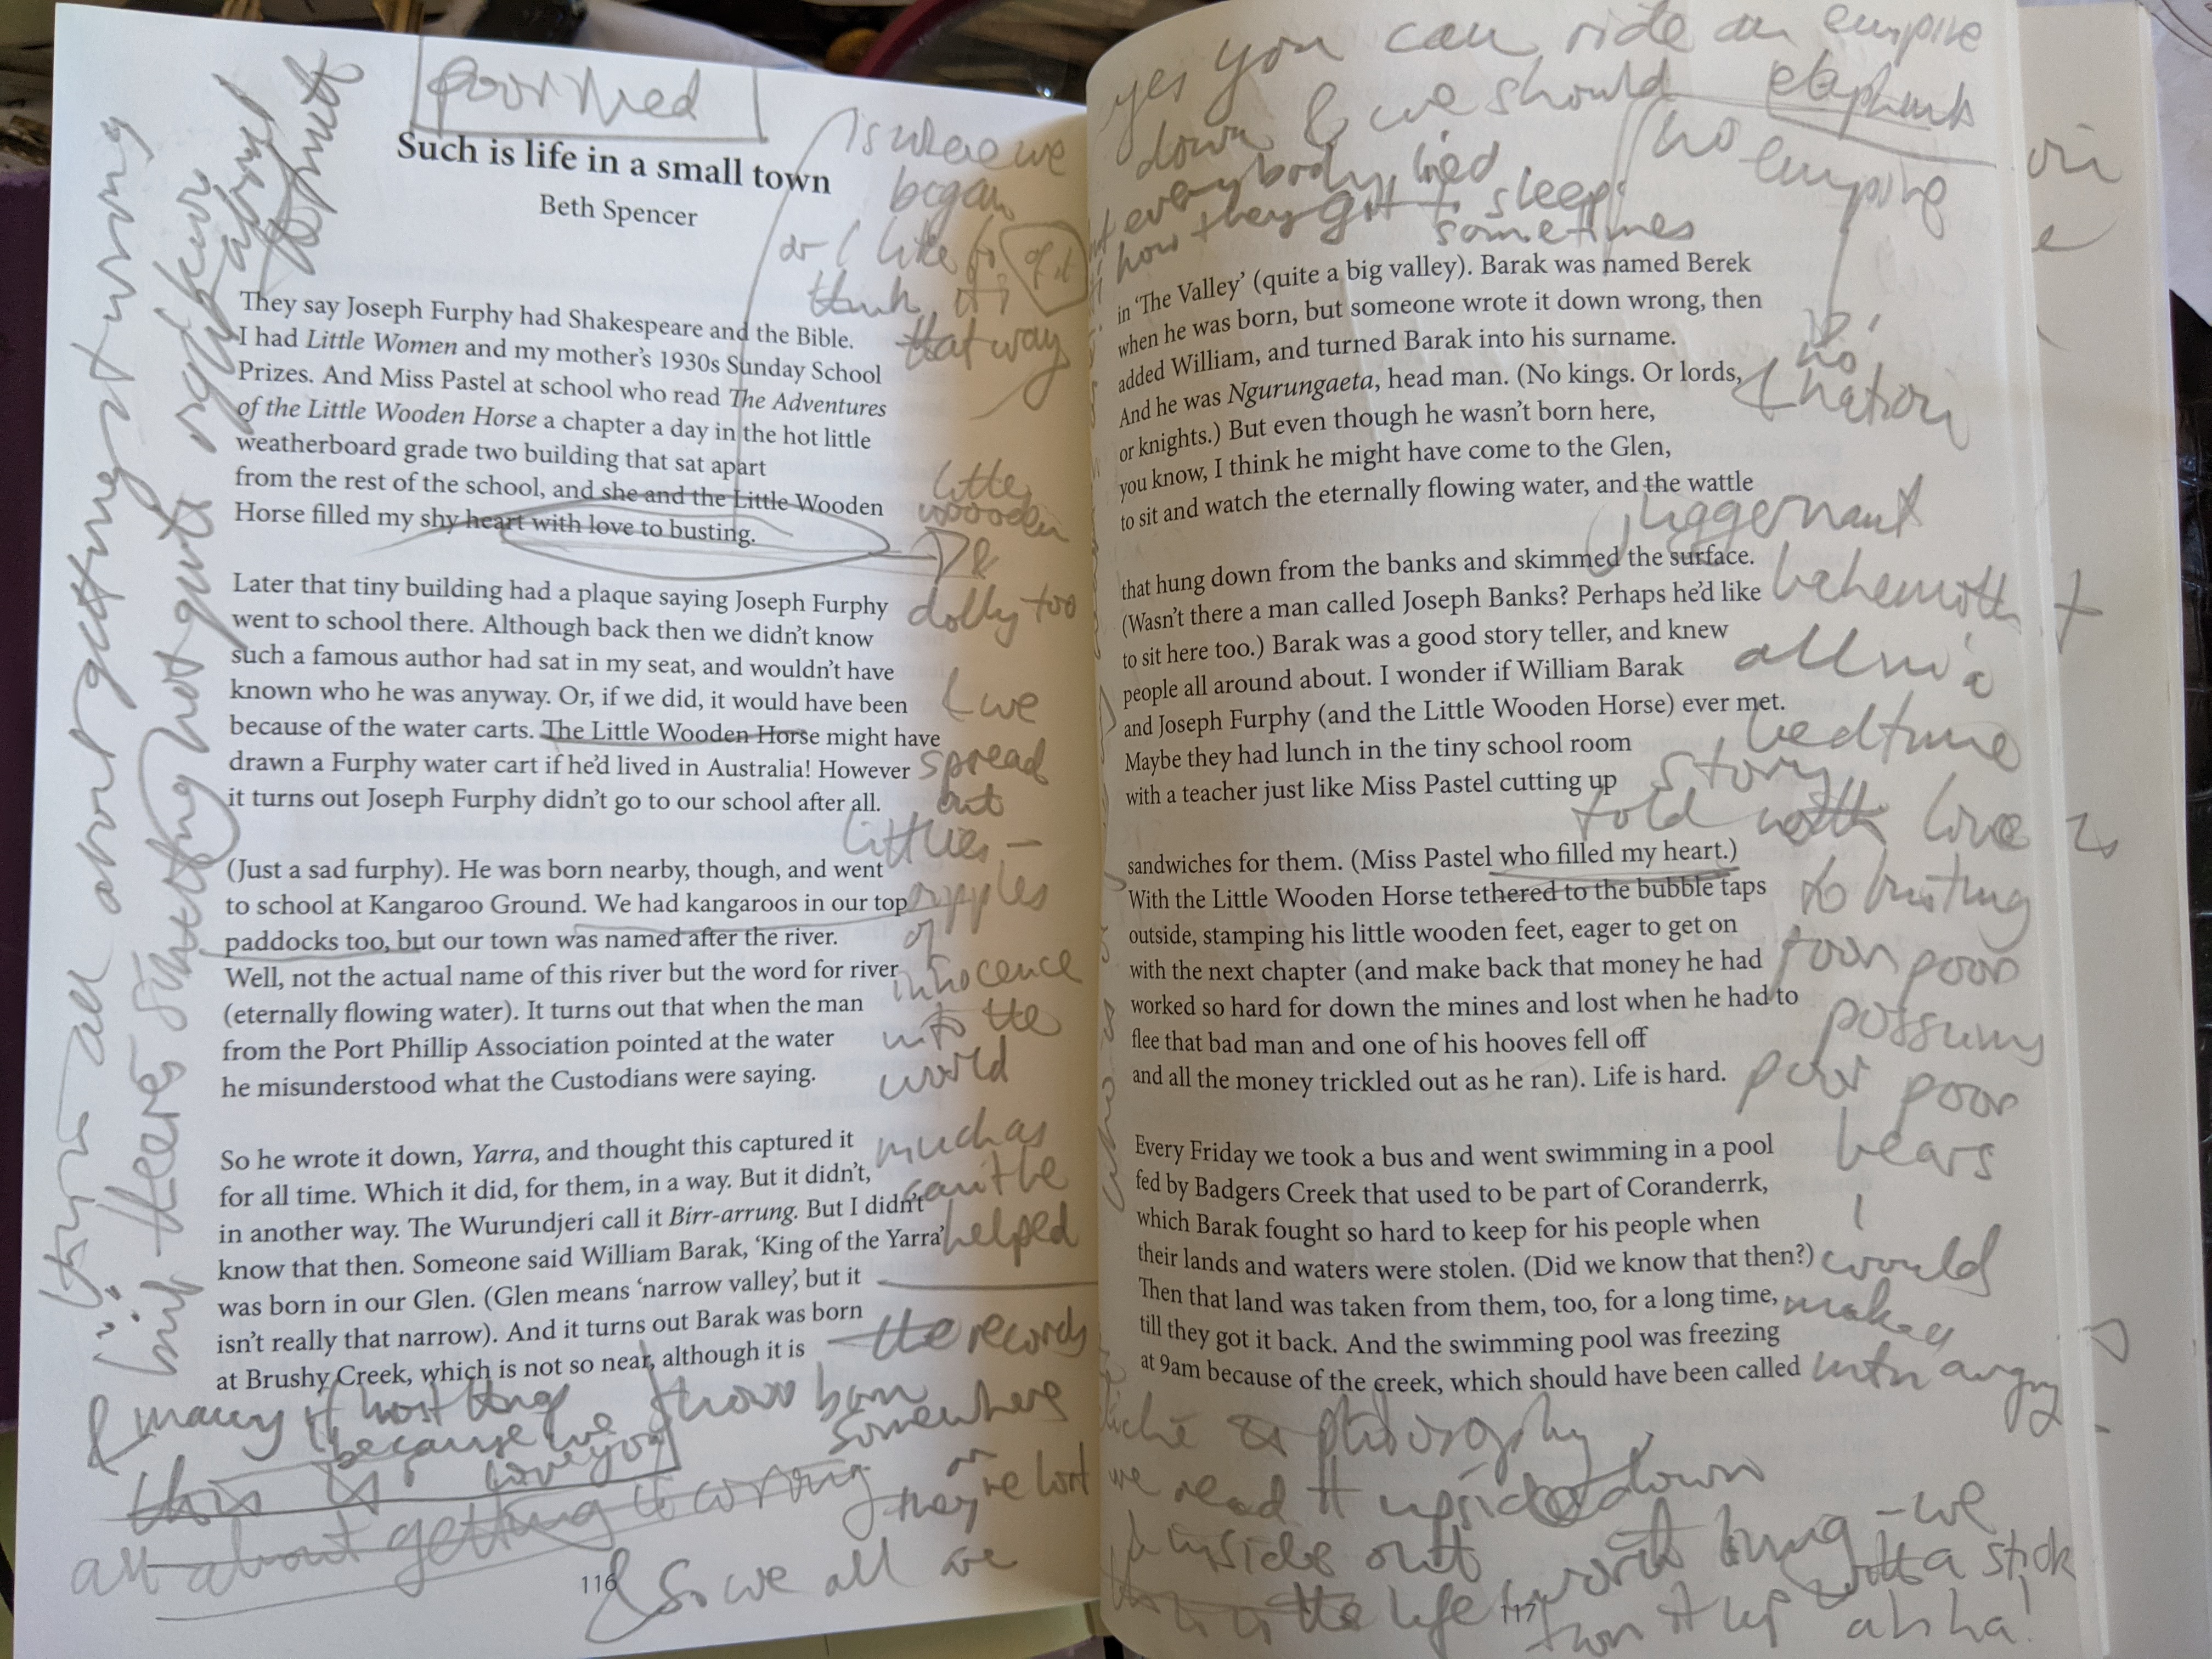 poor Ned
Such is life in a small town
Beth Spencer
They say Joseph Furphy had Shakespeare and the Bible.
I had Little Women and my mother's 1930s Sunday School
Prizes. And Miss Pastel at school who read The Adventures
of the Little Wooden Horse a chapter a day in the hot little
weatherboard grade two building that sat apart
from the rest of the school, and she and the Little Wooden
Horse filled my shy heart with love to busting.
Later that tiny building had a plaque saying Joseph Furphy
went to school there. Although back then we didn't know
such a famous author had sat in my seat, and wouldn't have
known who he was anyway. Or, if we did, it would have been
because of the water carts. The Little Wooden Horse might have
drawn a Furphy water cart if he'd lived in Australia! However
it turns out Joseph Furphy didn't go to our school after all.
(Just a sad furphy). He was born nearby, though, and went
to school at Kangaroo Ground. We had kangaroos in our top
paddocks too, but our town was named after the river.
Well, not the actual name of this river but the word for river
(eternally flowing water). It turns out that when the man
from the Port Phillip Association pointed at the water
he misunderstood what the Custodians were saying.
So he wrote it down, Yarra, and thought this captured it
for all time. Which it did, for them, in a way. But it didn't,
in another way. The Wurundjeri call it Birr-arrung. But I didn't
know that then. Someone said William Barak, 'King of the Yarra'
was born in our Glen. (Glen means 'narrow valley', but it
isn't really that narrow). And it turns out Barak was born
at Brushy Creek, which is not so near, although it is
116
is where we
began
or I like to
think of it
that way
little
wooden
&
dolly too
& we
spread
out
littlies –
ripples
of
innocence
into the
world
much as
can't be
helped
the records
show born
somewhere
or
they're lost
& many
because we
love you
this is
all about getting it wrong
& so we all are
all about getting it wrong
but there's something not quite right
yes you can ride an empire
down & we should elephants
no
empire
everybody lied
how they got to sleep
sometimes
in 'The Valley' (quite a big valley). Barak was named Berek
when he was born, but someone wrote it down wrong, then
added William, and turned Barak into his surname.
And he was Ngurungaeta, head man. (No kings. Or lords,
or knights.) But even though he wasn't born here,
you know, I think he might have come to the Glen,
to sit and watch the eternally flowing water, and the wattle
that hung down from the banks and skimmed the surface.
(Wasn't there a man called Joseph Banks? Perhaps he'd like
to sit here too.) Barak was a good story teller, and knew
people all around about. I wonder if William Barak
and Joseph Furphy (and the Little Wooden Horse) ever met.
Maybe they had lunch in the tiny school room
with a teacher just like Miss Pastel cutting up
sandwiches for them. (Miss Pastel who filled my heart.)
With the Little Wooden Horse tethered to the bubble taps
outside, stamping his little wooden feet, eager to get on
with the next chapter (and make back that money he had
worked so hard for down the mines and lost when he had to
flee that bad man and one of his hooves fell off
and all the money trickled out as he ran). Life is hard.
Every Friday we took a bus and went swimming in a pool
fed by Badgers Creek that used to be part of Coranderrk,
which Barak fought so hard to keep for his people when
their lands and waters were stolen. (Did we know that then?)
Then that land was taken from them, too, for a long time,
till they got it back. And the swimming pool was freezing
at 9am because of the creek, which should have been called
117
no
nation
juggernaut
behemoth
all in a
bedtime
story
told with love
to busting
poor poor
possums
poor poor
bears
would
make a
mtn angry
& philosophy
we read it upside down
& inside out
the life worth living – we
turn it up with a stick
ah ha!